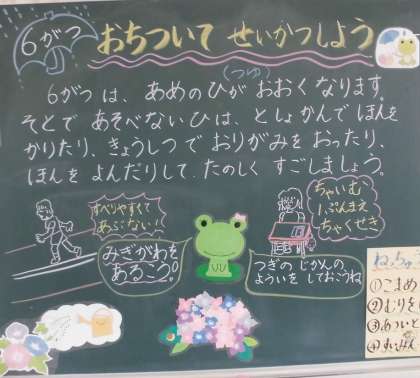 6がつ おちついて せいかつしよう
(つゆ)
6がつ は、あめの ひが おおく なります。
そとで あそべない ひは、としょかんで ほんを
かりたり、きょうしつ で おりがみを おったり、
ほんを よんだりして たのしく すごしましょう。
すべりやすくて
あぶない!
みぎがわを
あるこう。
ちゃいむ
1ぷんまえ
ちゃくせき
つぎの じかんの
よういを しておこうね
ねっちゅ
①こまめ
②むりを
③あついと
④すいみん